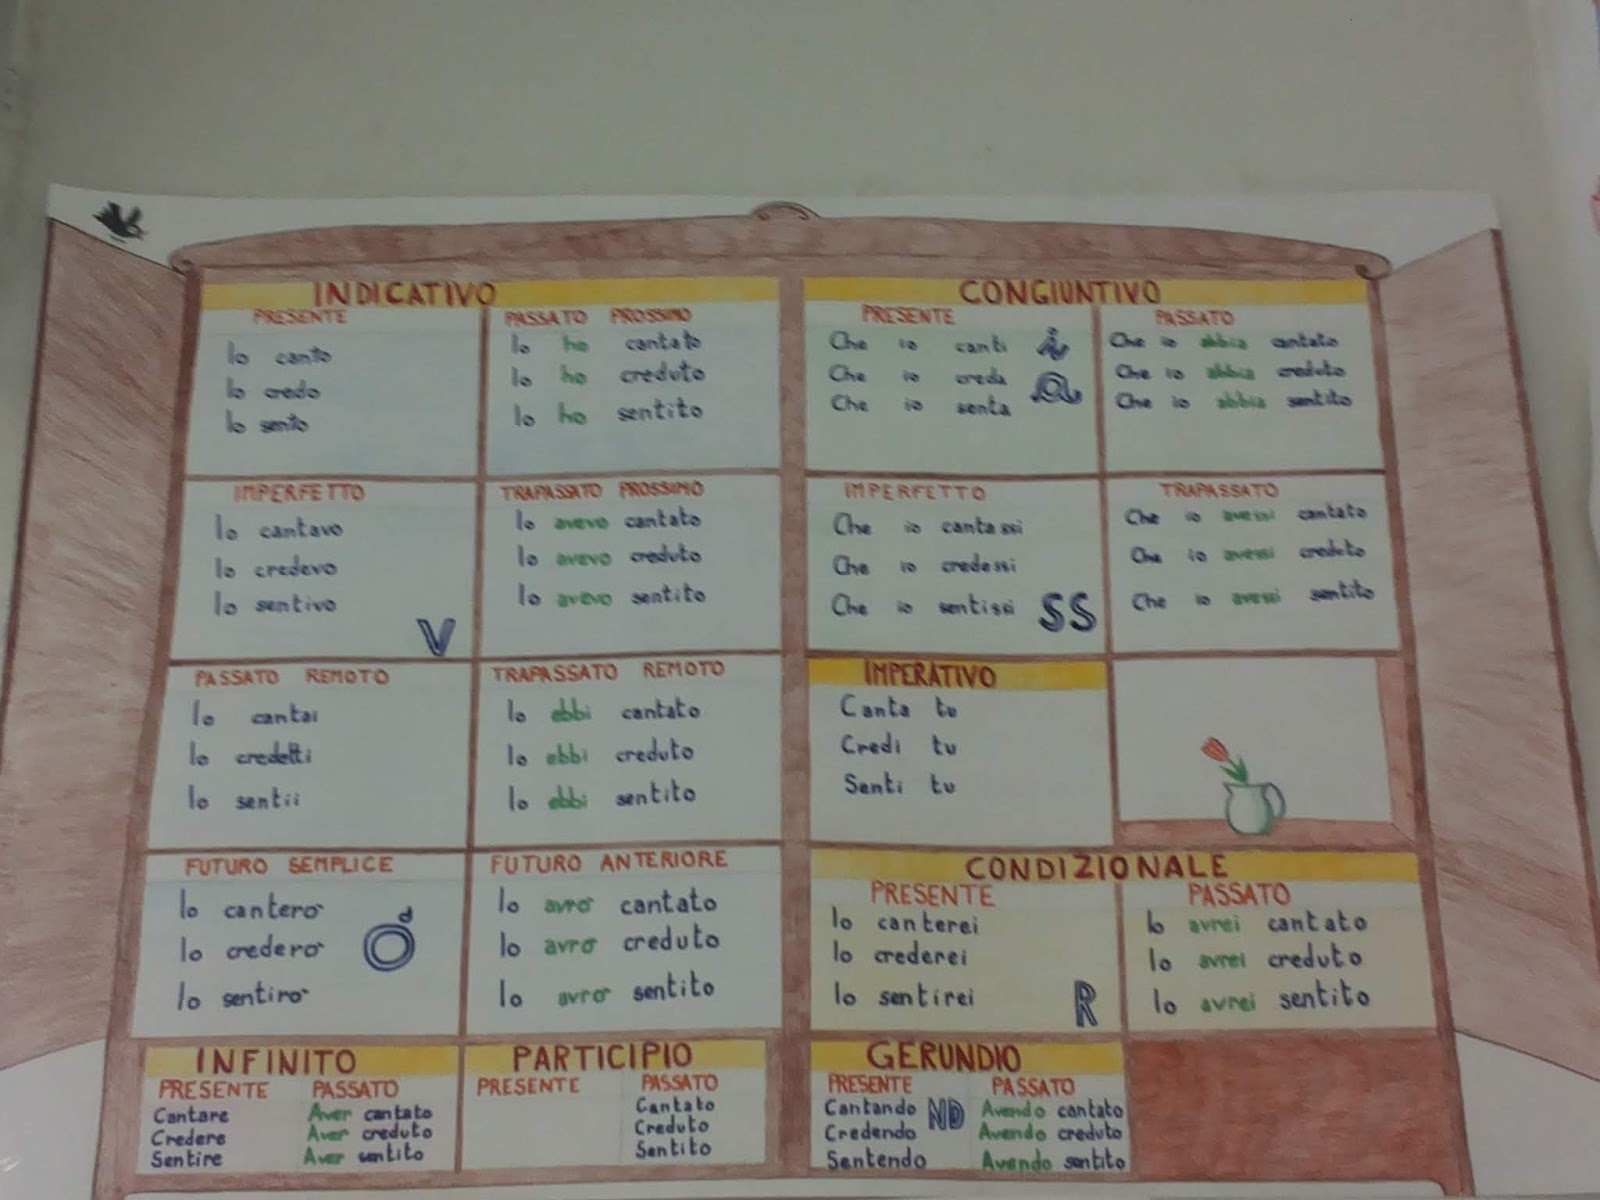 INDICATIVO
PRESENTE
Io canto
Io credo
Io sento
PASSATO PROSSIMO
Io ho cantato
Io ho creduto
Io ho sentito
IMPERFETTO
Io cantavo
Io credevo
Io sentivo
V
TRAPASSATO PROSSIMO
Io avevo cantato
Io avevo creduto
Io avevo sentito
PASSATO REMOTO
Io cantai
Io credetti
Io sentii
TRAPASSATO REMOTO
Io ebbi cantato
Io ebbi creduto
Io ebbi sentito
FUTURO SEMPLICE
Io canterò
Io crederò
Io sentirò
Ó
FUTURO ANTERIORE
Io avrò cantato
Io avrò creduto
Io avrò sentito
CONGIUNTIVO
PRESENTE
Che io canti
Che io creda
Che io senta
i
a
PASSATO
Che io abbia cantato
Che io abbia creduto
Che io abbia sentito
IMPERFETTO
Che io cantassi
Che io credessi
Che io sentissi
SS
TRAPASSATO
Che io avessi cantato
Che io avessi creduto
Che io avessi sentito
IMPERATIVO
Canta tu
Credi tu
Senti tu
CONDIZIONALE
PRESENTE
Io canterei
Io crederei
Io sentirei
R
PASSATO
Io avrei cantato
Io avrei creduto
Io avrei sentito
INFINITO
PRESENTE
Cantare
Credere
Sentire
PASSATO
Aver cantato
Aver creduto
Aver sentito
PARTICIPIO
PRESENTE
PASSATO
Cantato
Creduto
Sentito
GERUNDIO
PRESENTE
Cantando
Credendo
Sentendo
ND
PASSATO
Avendo cantato
Avendo creduto
Avendo sentito